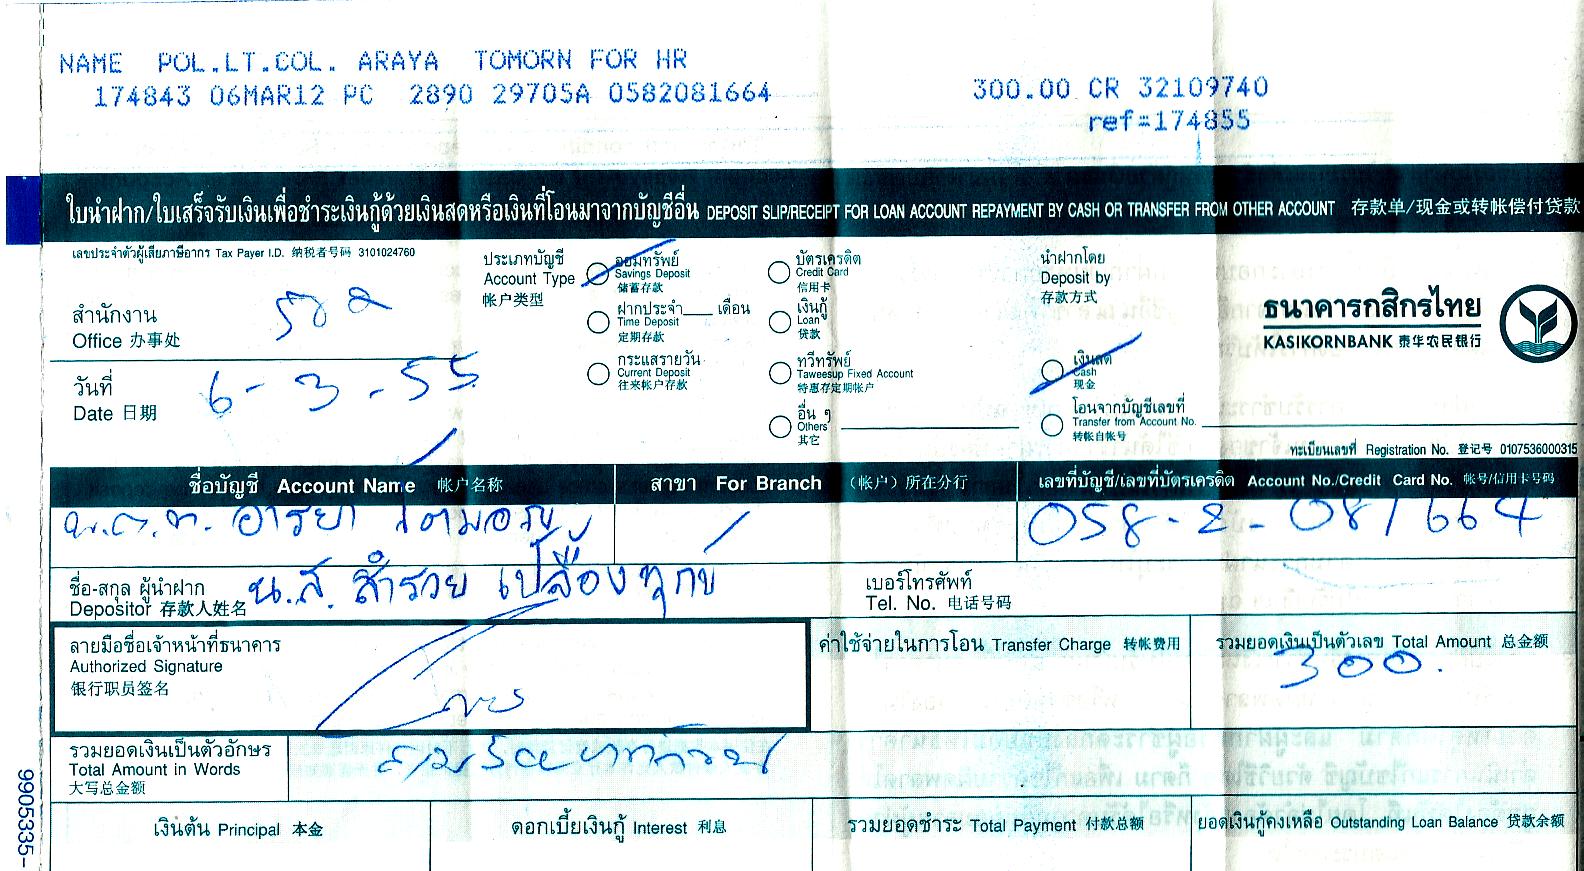 NAME POL.LT.COL. ARAYA TOMORN FOR HR
174843 06MAR12 PC 2890 29705A 0582081664
300.00 CR 32109740
ref=174855
ใบนำฝาก/ใบเสร็จรับเงินเพื่อชำระเงินกู้ด้วยเงินสดหรือเงินที่โอนมาจากบัญชีอื่น DEPOSIT SLIP/RECEIPT FOR LOAN ACCOUNT REPAYMENT BY CASH OR TRANSFER FROM OTHER ACCOUNT 存款单/现金或转帐偿付贷款
เลขประจำตัวผู้เสียภาษีอากร Tax Payer I.D. 纳税者号码 3101024760
สำนักงาน
Office 办事处
วันที่
Date 日期
6-3-55
ประเภทบัญชี
Account Type
帐户类型
ออมทรัพย์
Savings Deposit
储蓄存款
ฝากประจำ___ เดือน
Time Deposit
定期存款
กระแสรายวัน
Current Deposit
往来帐户存款
บัตรเครดิต
Credit Card
信用卡
เงินกู้
Loan
贷款
ทวีทรัพย์
Taweesup Fixed Account
特惠存定期帐户
อื่น ๆ
Others
其它
นำฝากโดย
Deposit by
存款方式
เงินสด
Cash
现金
โอนจากบัญชีเลขที่
Transfer from Account No.
转帐自帐号
ธนาคารกสิกรไทย
KASIKORNBANK 泰华农民银行
ทะเบียนเลขที่ Registration No. 登记号 0107536000315
ชื่อบัญชี Account Name 帐户名称
สาขา For Branch (帐户) 所在分行
เลขที่บัญชี/เลขที่บัตรเครดิต Account No./Credit Card No. 帐号/信用卡号码
พ.ต.ท. อารยา โตมอญ
058-2-081664
ชื่อ-สกุล ผู้นำฝาก
Depositor 存款人姓名
น.ส. สำรวย เปลื้องทุกข์
เบอร์โทรศัพท์
Tel. No. 电话号码
ลายมือชื่อเจ้าหน้าที่ธนาคาร
Authorized Signature
银行职员签名
ค่าใช้จ่ายในการโอน Transfer Charge 转帐费用
รวมยอดเงินเป็นตัวเลข Total Amount 总金额
300.
รวมยอดเงินเป็นตัวอักษร
Total Amount in Words
大写总金额
สามร้อยบาทถ้วน
เงินต้น Principal 本金
ดอกเบี้ยเงินกู้ Interest 利息
รวมยอดชำระ Total Payment 付款总额
ยอดเงินกู้คงเหลือ Outstanding Loan Balance 贷款余额
9905335-